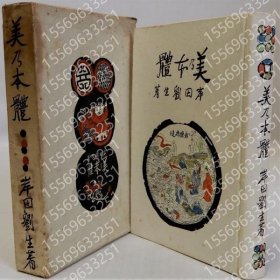 美乃本體
岸田劉生著
美乃本體
岸田劉生著
美乃本體
岸田劉生著
15569633251
15569633251
15569633251
15569633251
15569633251
15569633251